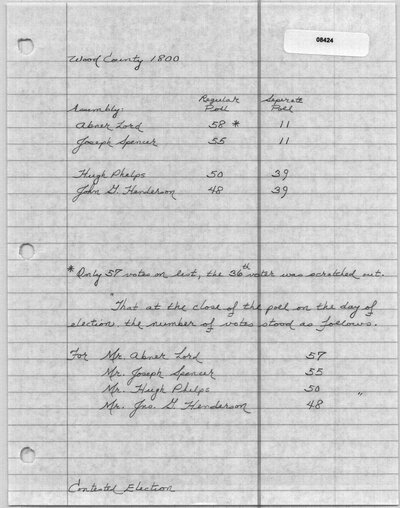 08424
Wood County 1800
Regular Seperate
Assembly: Poll Poll
Abner Lord 58 * 11
Joseph Spencer 55 11
Hugh Phelps 50 39
John G. Henderson 48 39
* Only 57 votes on list, the 36th voter was scratched out.
"That at the close of the poll on the day of
election the number of votes stood as follows.
For Mr. Abner Lord 57
Mr. Joseph Spencer 55
Mr. Hugh Phelps 50
Mr. Jno. G. Henderson 48 "
Contested Election